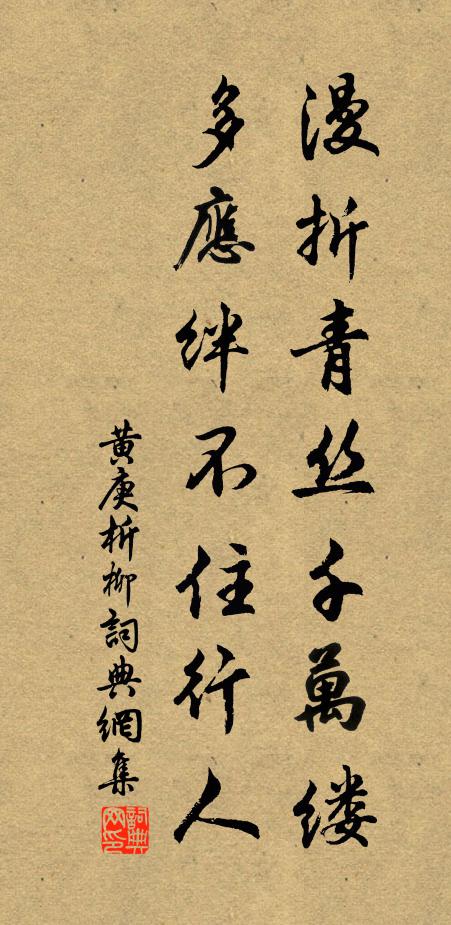 漫折青丝千萬缕
多應绊不住行人
黄庚折柳詞典網集
詞典网印